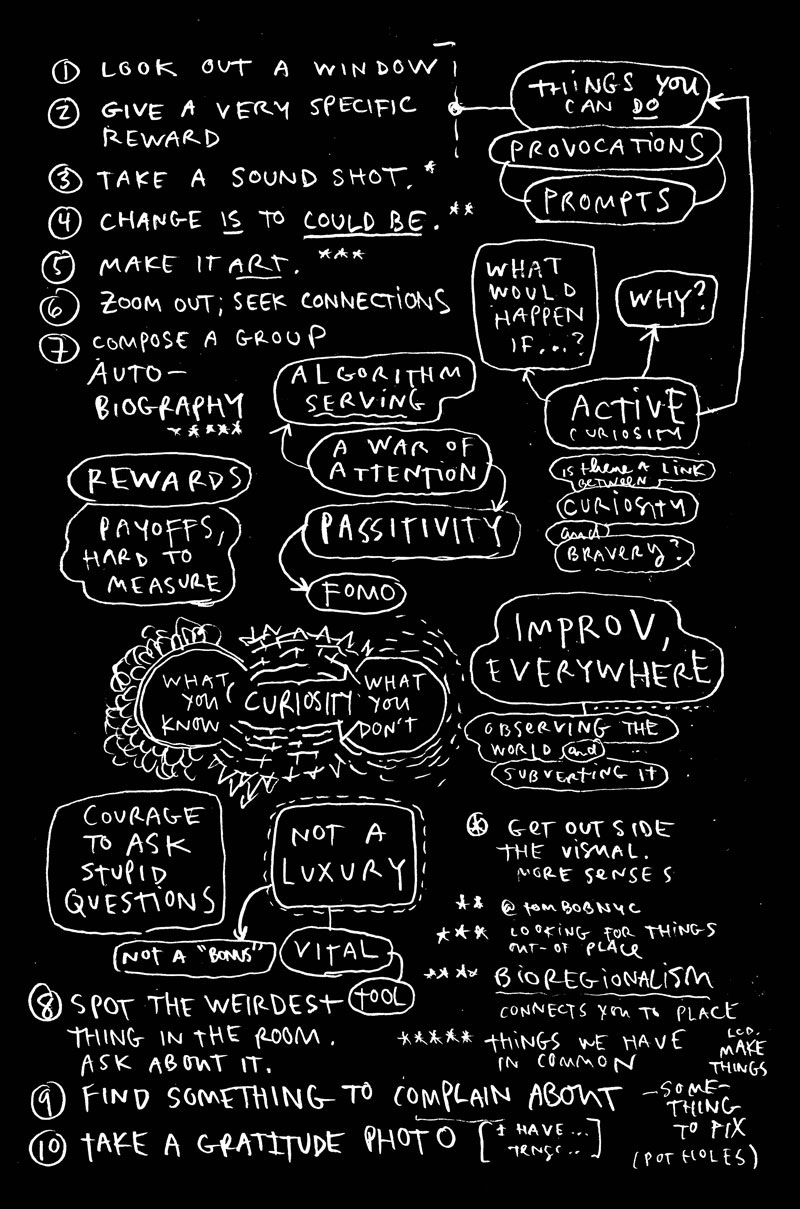 1 LOOK OUT A WINDOW
2 GIVE A VERY SPECIFIC
REWARD
3 TAKE A SOUND SHOT. *
4 CHANGE IS TO COULD BE. **
5 MAKE IT ART. ***
6 ZOOM OUT; SEEK CONNECTIONS
7 COMPOSE A GROUP
AUTO-
BIOGRAPHY
*****
THINGS YOU
CAN DO
PROVOCATIONS
PROMPTS
WHAT
WOULD
HAPPEN
IF...?
WHY?
ACTIVE
CURIOSITY
IS THERE A LINK
BETWEEN
CURIOSITY
and
BRAVERY?
ALGORITHM
SERVING
A WAR OF
ATTENTION
PASSITIVITY
FOMO
REWARDS
PAYOFFS,
HARD TO
MEASURE
WHAT
YOU
KNOW
CURIOSITY
WHAT
YOU
DON'T
IMPROV,
EVERYWHERE
OBSERVING THE
WORLD and
SUBVERTING IT
COURAGE
TO ASK
STUPID
QUESTIONS
NOT A
LUXURY
NOT A "BONUS"
VITAL
TOOL
* GET OUT SIDE
THE VISUAL.
MORE SENSES
** @tomBOBNYC
*** LOOKING FOR THINGS
OUT-OF PLACE
**** BIOREGIONALISM
CONNECTS YOU TO PLACE
***** THINGS WE HAVE
IN COMMON
LCD.
MAKE
THINGS
8 SPOT THE WEIRDEST
THING IN THE ROOM.
ASK ABOUT IT.
9 FIND SOMETHING TO COMPLAIN ABOUT
—SOME-
THING
TO FIX
(POT HOLES)
10 TAKE A GRATITUDE PHOTO
[I HAVE...
]